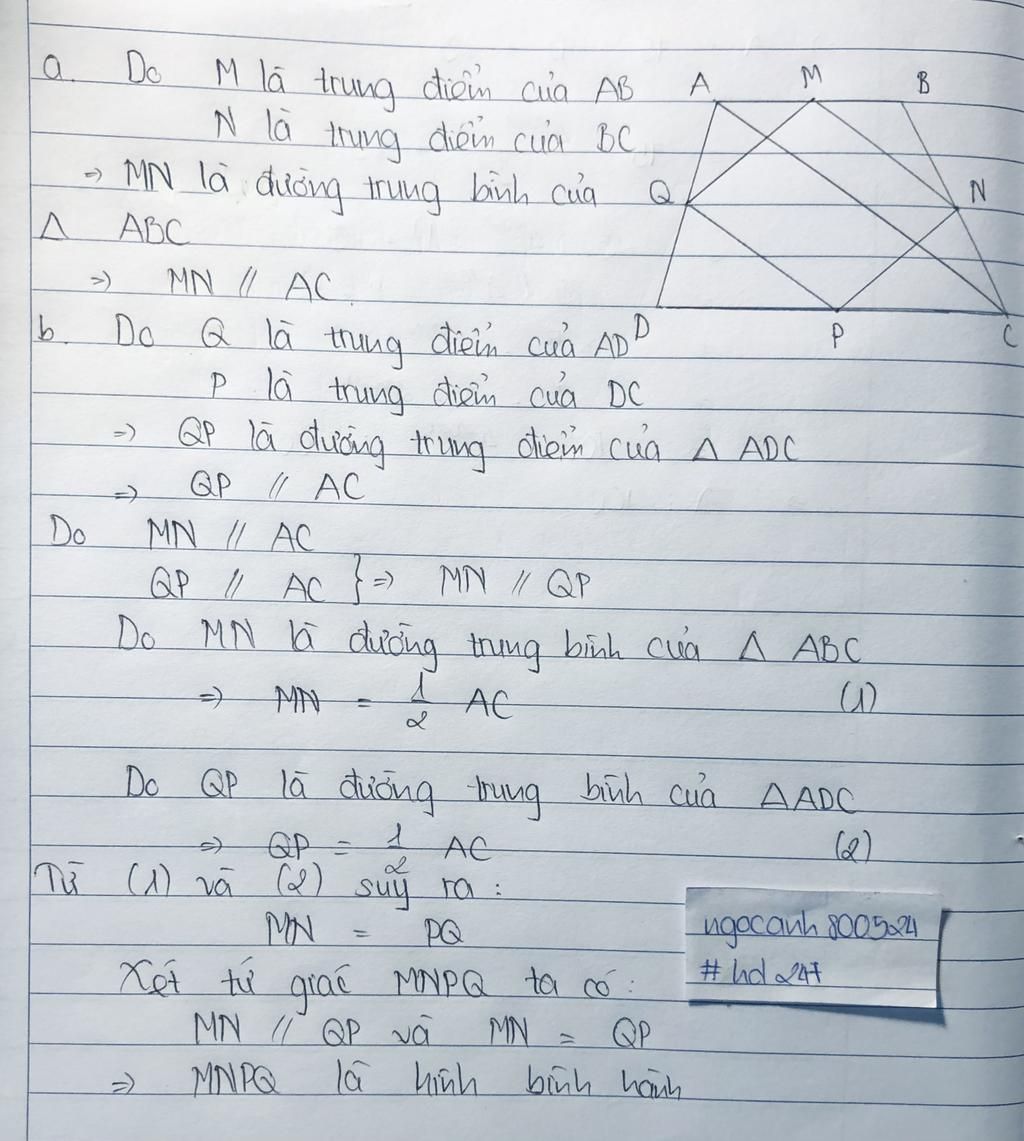 a. Do M là trung điểm của AB
N là trung điểm của BC
⇒ MN là đường trung bình của
Δ ABC
⇒ MN // AC
A M B
Q N
D P C
b. Do Q là trung điểm của AD
P là trung điểm của DC
⇒ QP là đường trung điểm của Δ ADC
⇒ QP // AC
Do MN // AC
QP // AC } ⇒ MN // QP
Do MN là đường trung bình của Δ ABC
⇒ MN = 1/2 AC (1)
Do QP là đường trung bình của ΔADC
⇒ QP = 1/2 AC (2)
Từ (1) và (2) suy ra :
MN = PQ
Xét tứ giác MNPQ ta có :
MN // QP và MN = QP
⇒ MNPQ là hình bình hành
ngocanh800524
#hd247